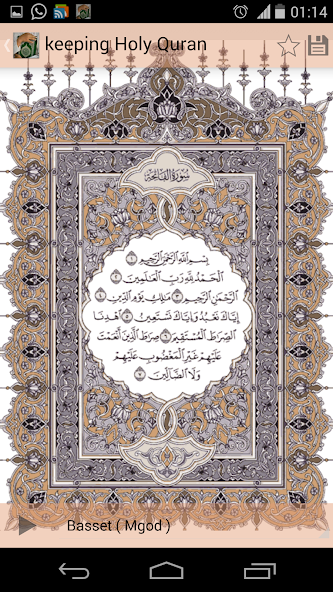 01:14
keeping Holy Quran
سُورَةُ الفَاتِحَةِ
بِسْمِ اللَّهِ الرَّحْمَٰنِ الرَّحِيمِ ١
الْحَمْدُ لِلَّهِ رَبِّ الْعَالَمِينَ ٢
الرَّحْمَٰنِ الرَّحِيمِ ٣ مَالِكِ يَوْمِ الدِّينِ ٤
إِيَّاكَ نَعْبُدُ وَإِيَّاكَ نَسْتَعِينُ ٥ اهْدِنَا
الصِّرَاطَ الْمُسْتَقِيمَ ٦ صِرَاطَ الَّذِينَ أَنْعَمْتَ
عَلَيْهِمْ غَيْرِ الْمَغْضُوبِ عَلَيْهِمْ
وَلَا الضَّالِّينَ ٧
Basset ( Mgod )